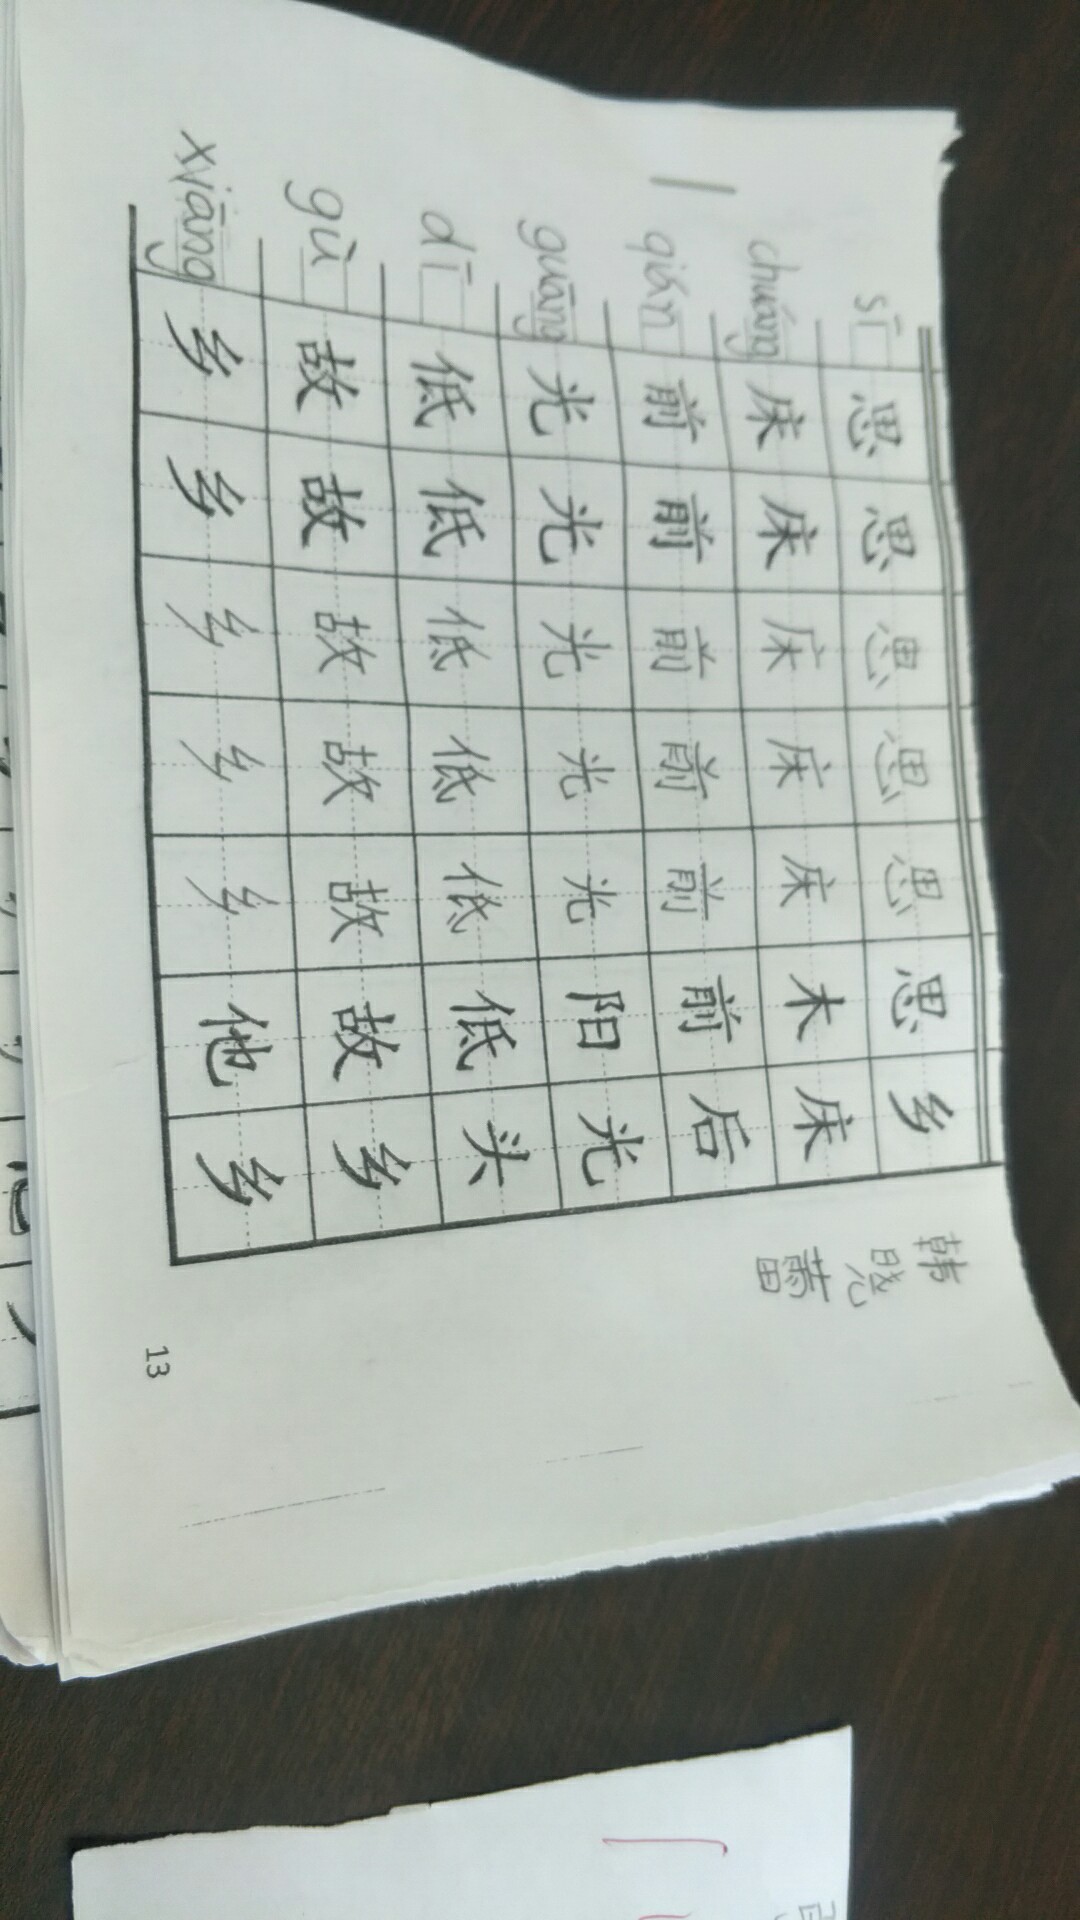 sī 思思思思思思乡
chuáng 床床床床床木床
qián 前前前前前前后
guāng 光光光光光阳光
dī 低低低低低低头
gù 故故故故故故乡
xiāng 乡乡乡乡乡他乡
韩晓蕾
13